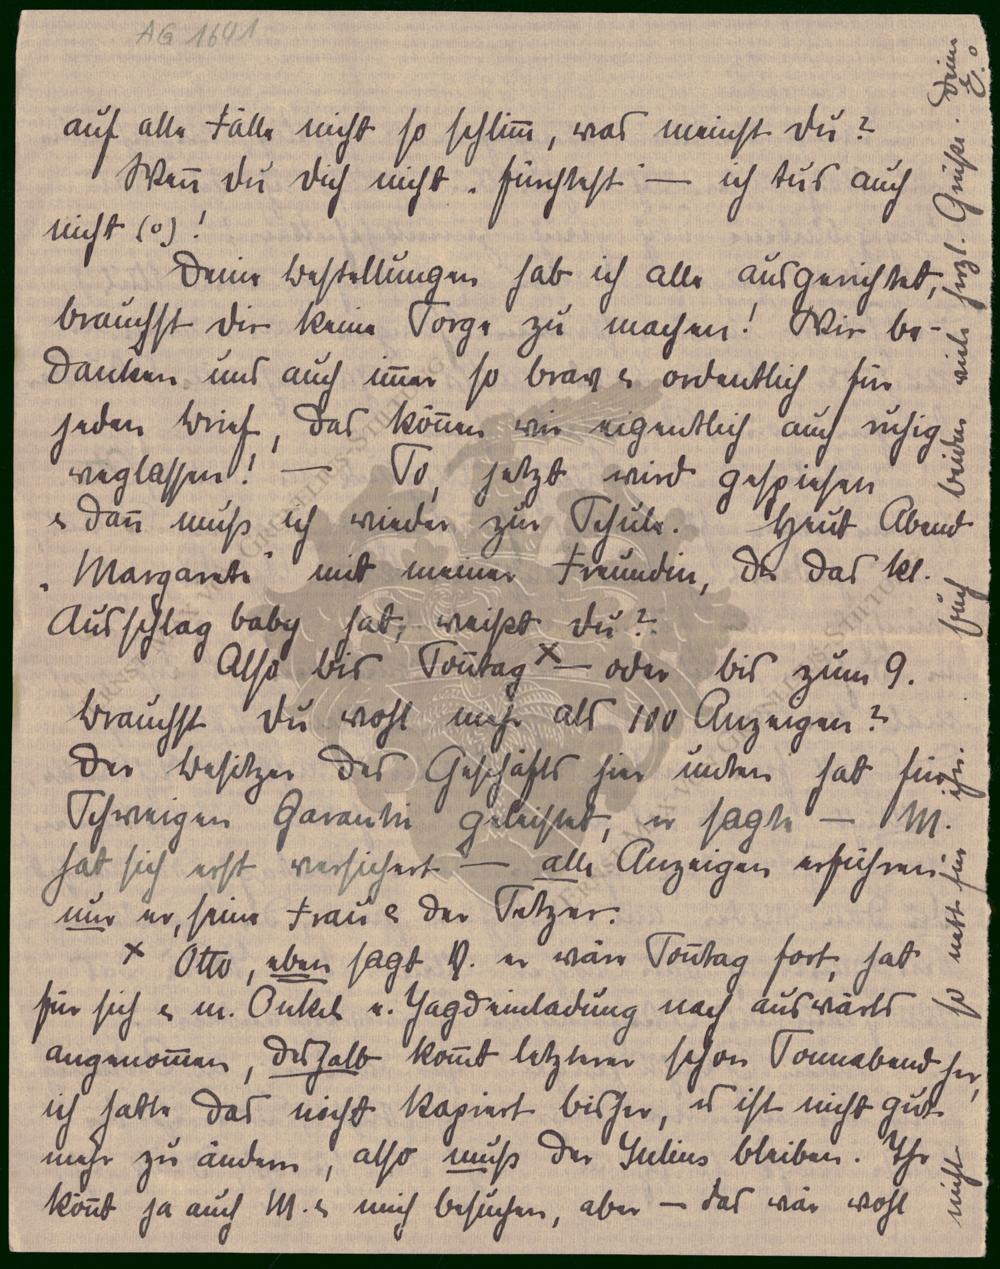 AG 1641
auf alle Fälle nicht so schlim̄, was meinst du?
Wen̄ du dich nicht fürchtest — ich tus auch
nicht (o)!
Deine Bestellungen hab ich alle ausgerichtet,
brauchst dir keine Sorge zu machen! Wir be-
danken uns auch im̄er so brav & ordentlich für
jeden Brief, das kön̄en wir eigentlich auch ruhig
weglassen! — So, jetzt wird gespiesen
& dan̄ muß ich wieder zur Schule. Heut Abend
„Margarete" mit meiner Freundin, die das kl.
Ausschlag baby hat, weißt du?
Also bis Son̄tag x — oder bis zum 9.
Brauchst du wohl mehr als 100 Anzeigen?
Der Besitzer des Geschäfts hier unten hat für
Schweigen Garantie geleistet, er sagte — M.
hat sich erst versichert — alle Anzeigen erführen
nur er, seine Frau & der Setzer.
x Otto, eben sagt V. er wäre Son̄tag fort, hat
für sich & m. Onkel e. Jagdeinladung nach auswärts
angenom̄en, deshalb kom̄t letzterer schon Sonnabend her,
ich hatte das nicht kapiert bisher, es ist nicht gut
mehr zu ändern, also muß der Julius bleiben. Ihr
kön̄t ja auch M. & mich besuchen, aber — das wär wohl
nicht so nett für ihn. Euch beiden viele herzl. Grüße. Deine
E.